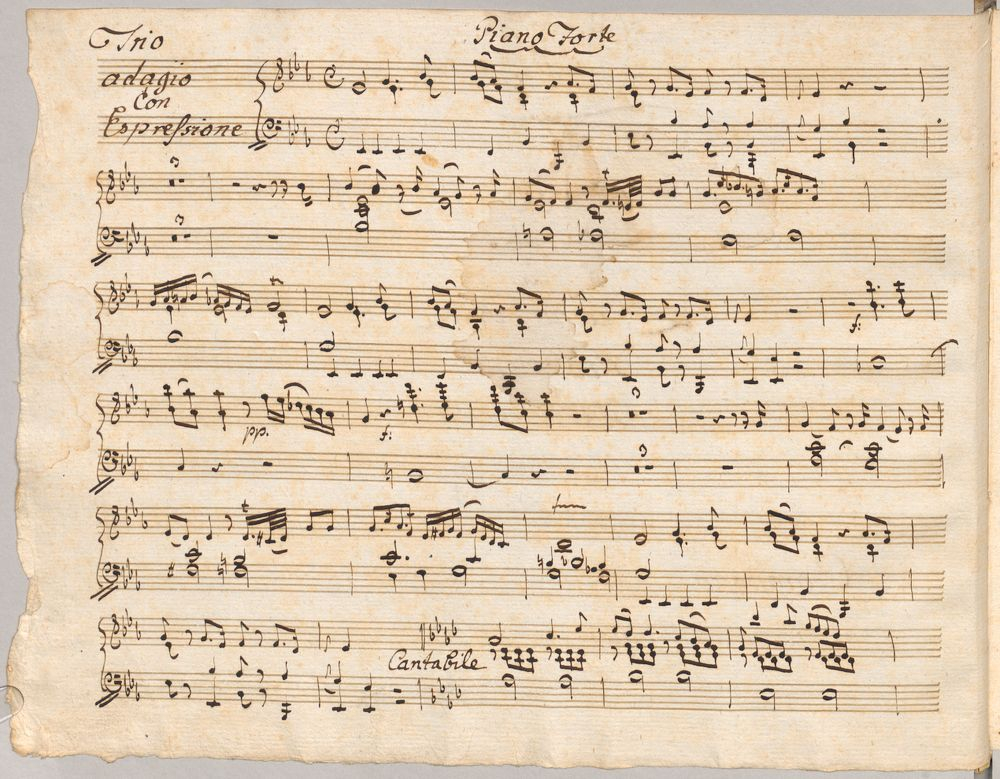 Trio
Piano Forte
adagio
Con
Espressione
3
3
f:
pp.
f:
3
3
Cantabile